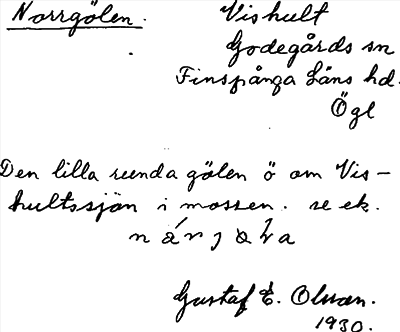 Norrgölen. Vishult
Godegårds sn
Finspånga läns hd.
Ögl
Den lilla runda gölen ö om Vis-
hultssjön i mossen. se ek.
Gustaf E. Olsson.
1930.